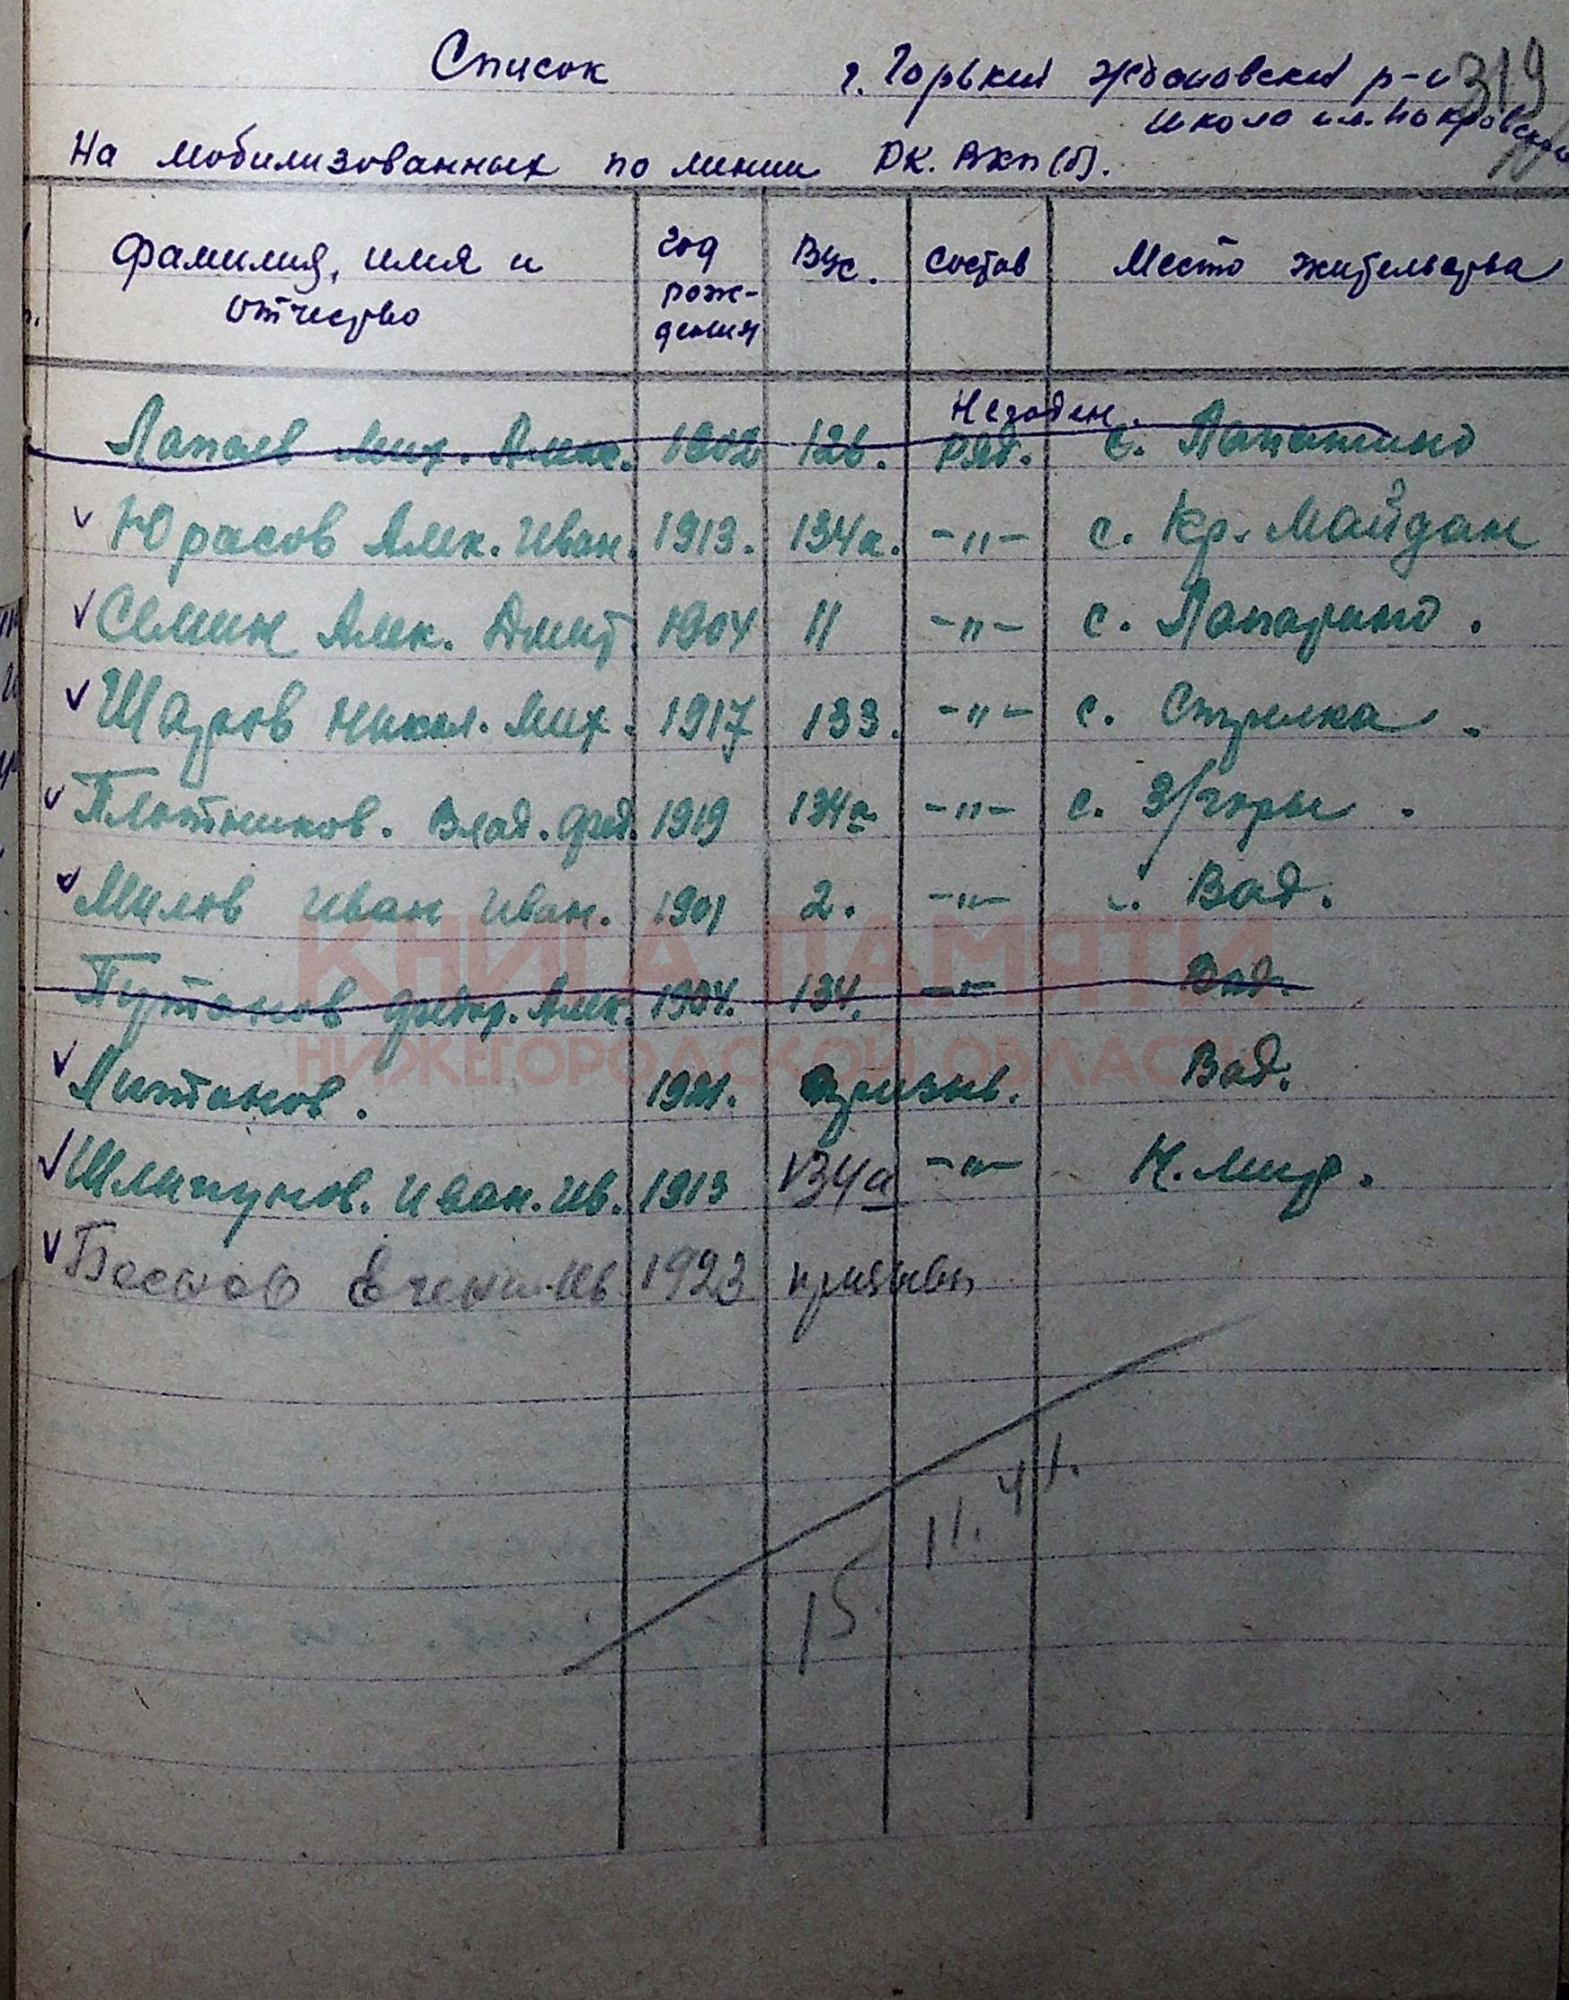 319
Список г. Горький Ждановский р-н
школа им. Покровского
На мобилизованных по линии РК. ВКП(б).
Фамилия, имя и отчество год рождения Вус. состав Место жительства
Незабен.
Лапаев Мих. Алек. 1902 126. ряд. с. Лопатино
v Юрасов Алек. Иван. 1913. 134а. -"- с. Кр. Майдан
v Семин Алек. Дмит. 1904 11 -"- с. Лопатино.
v Шаров Никол. Мих. 1917 133. -"- с. Стрелка.
v Плотников. Влад. Фед. 1919 134а -"- с. З/горы.
v Милов Иван Иван. 1901 2. -"- ". Вад.
Федор. Алек. 1904. 134. -"- Вад.
v 1921. призыв. Вад.
v Шлипунов. Иван. Ив. 1913 134а -"- К. Мыр.
v 1923 призывн
15. 11. 41.
КНИГА ПАМЯТИ
НИЖЕГОРОДСКОЙ ОБЛАСТИ